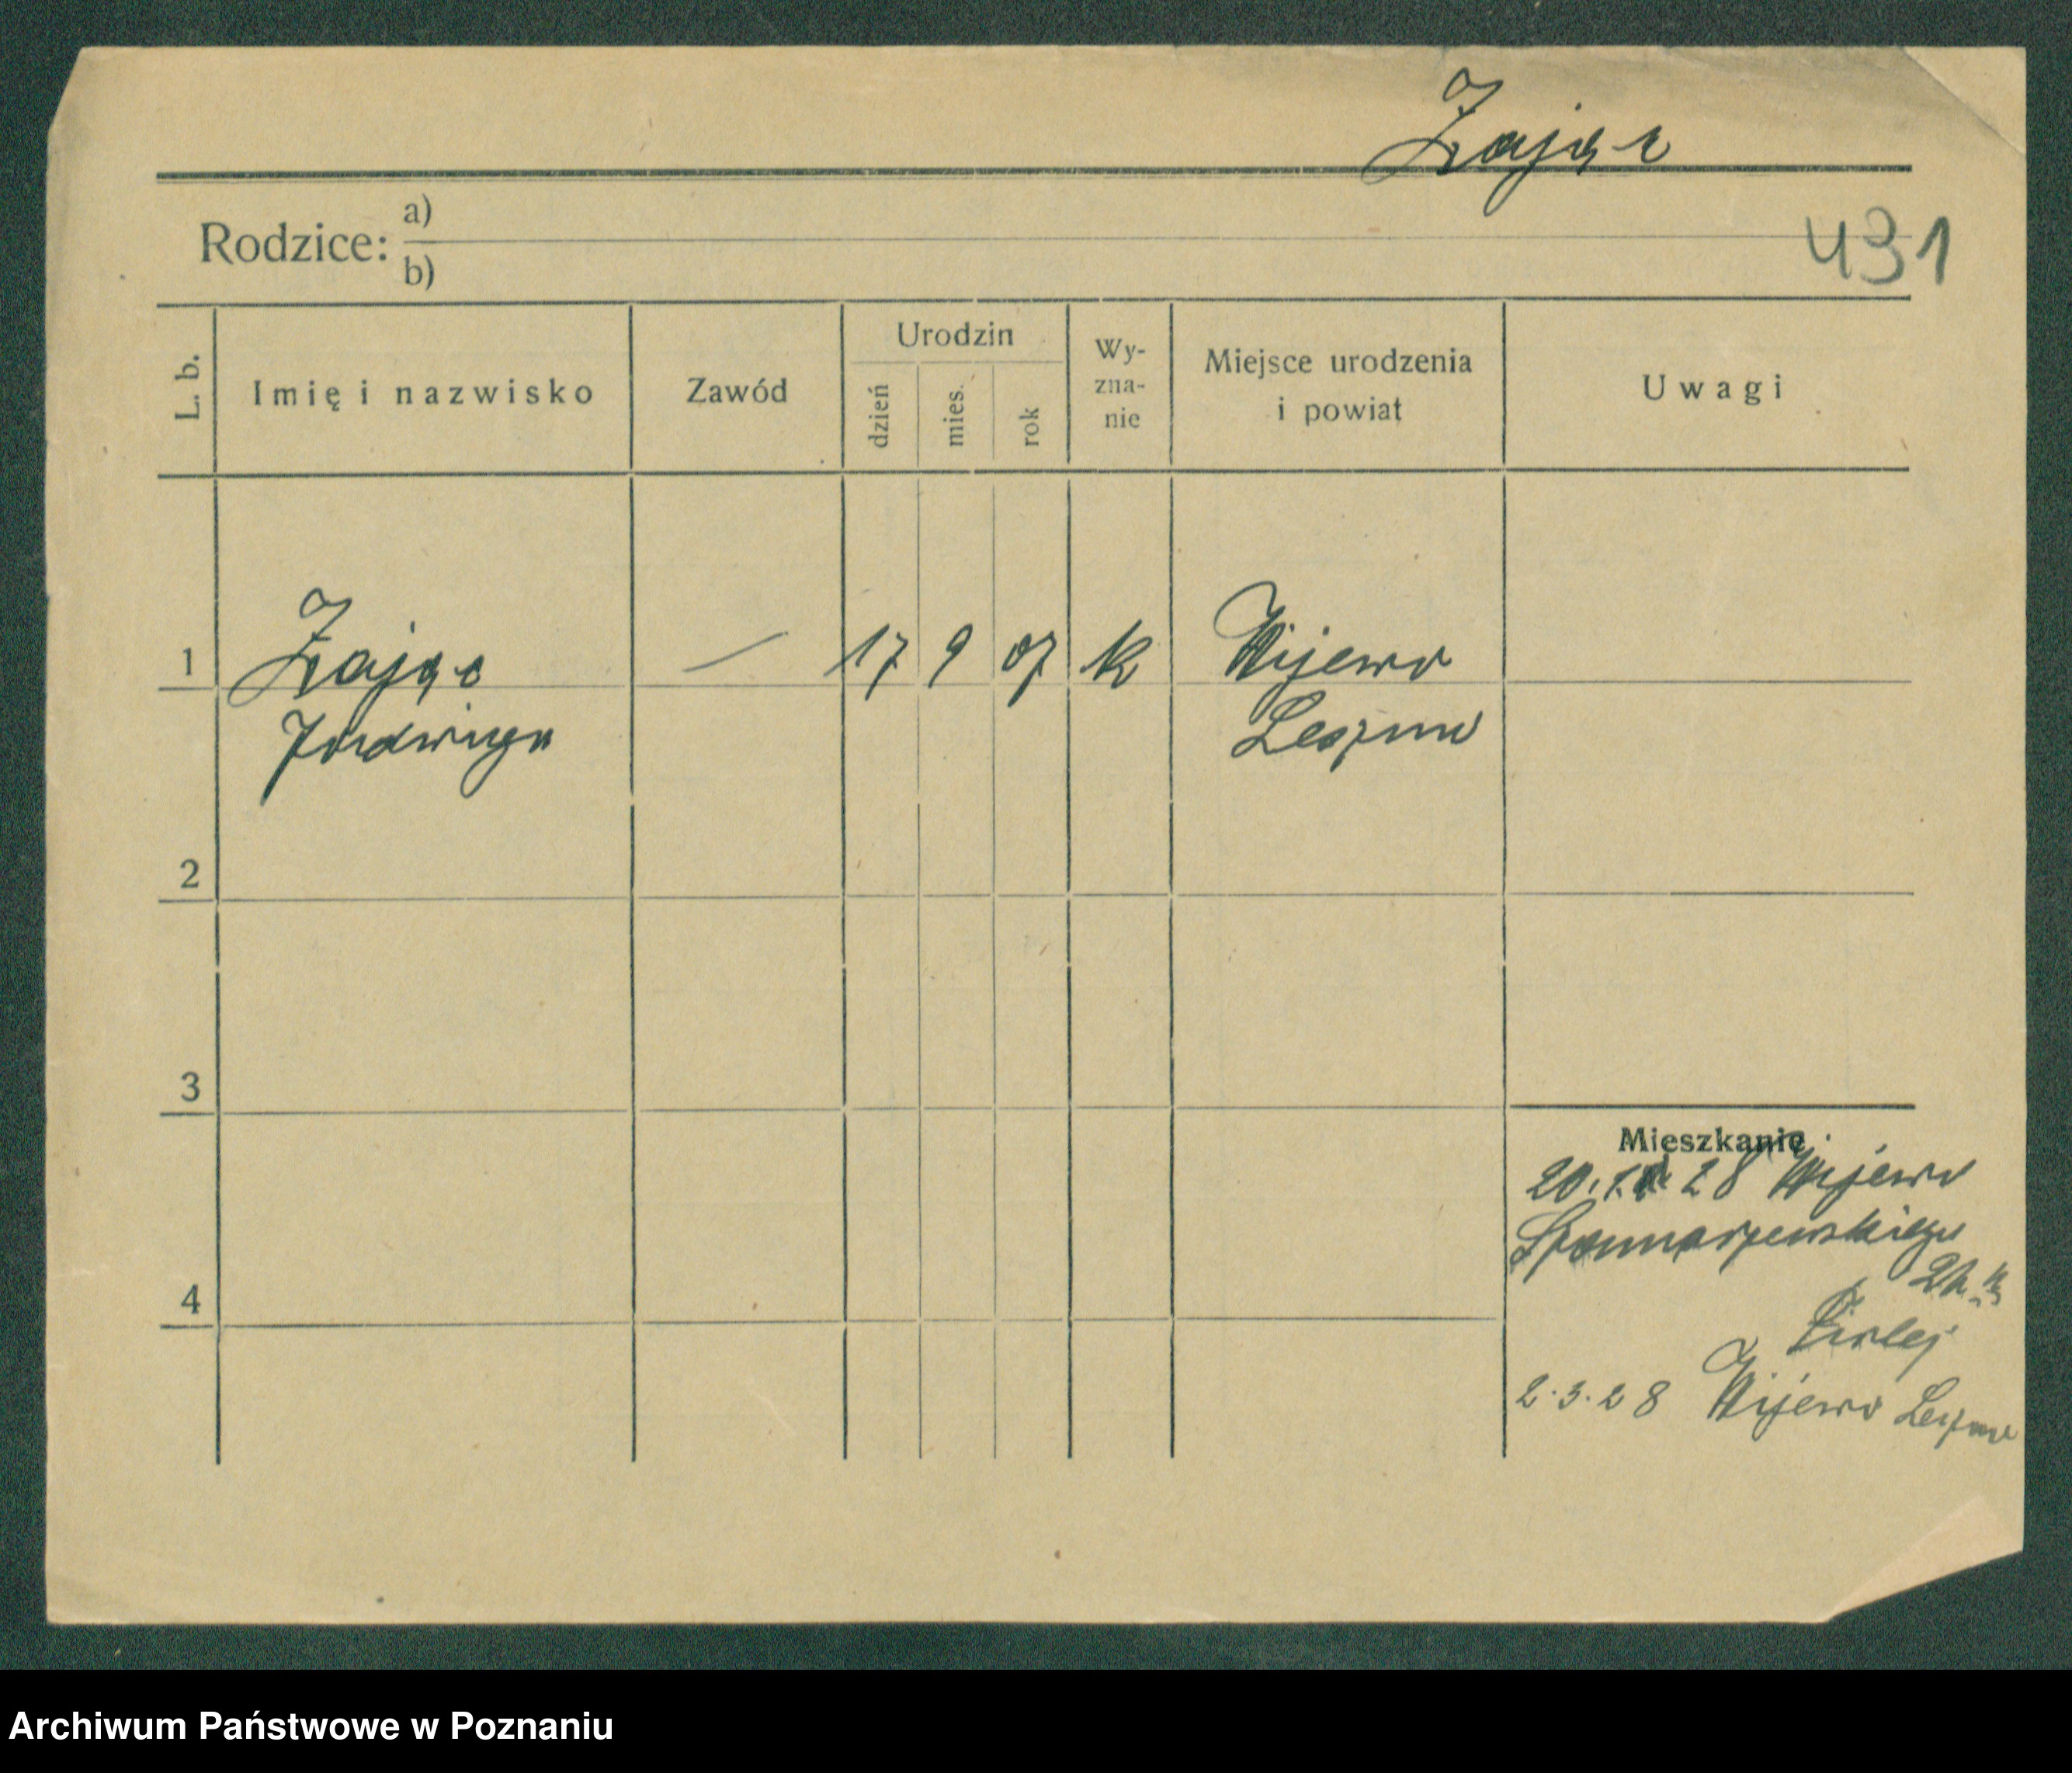 Zając
Rodzice: a)
b)
431
L. b.
Imię i nazwisko
Zawód
Urodzin
dzień
mies.
rok
Wy-
zna-
nie
Miejsce urodzenia
i powiat
Uwagi
1
Zając
Jadwiga
—
17
9
07
k
Wijewo
Leszno
2
3
4
Mieszkanie
28 Wijewo
Szamarzewskiego
2.3.28 Wijewo Leszno
Archiwum Państwowe w Poznaniu